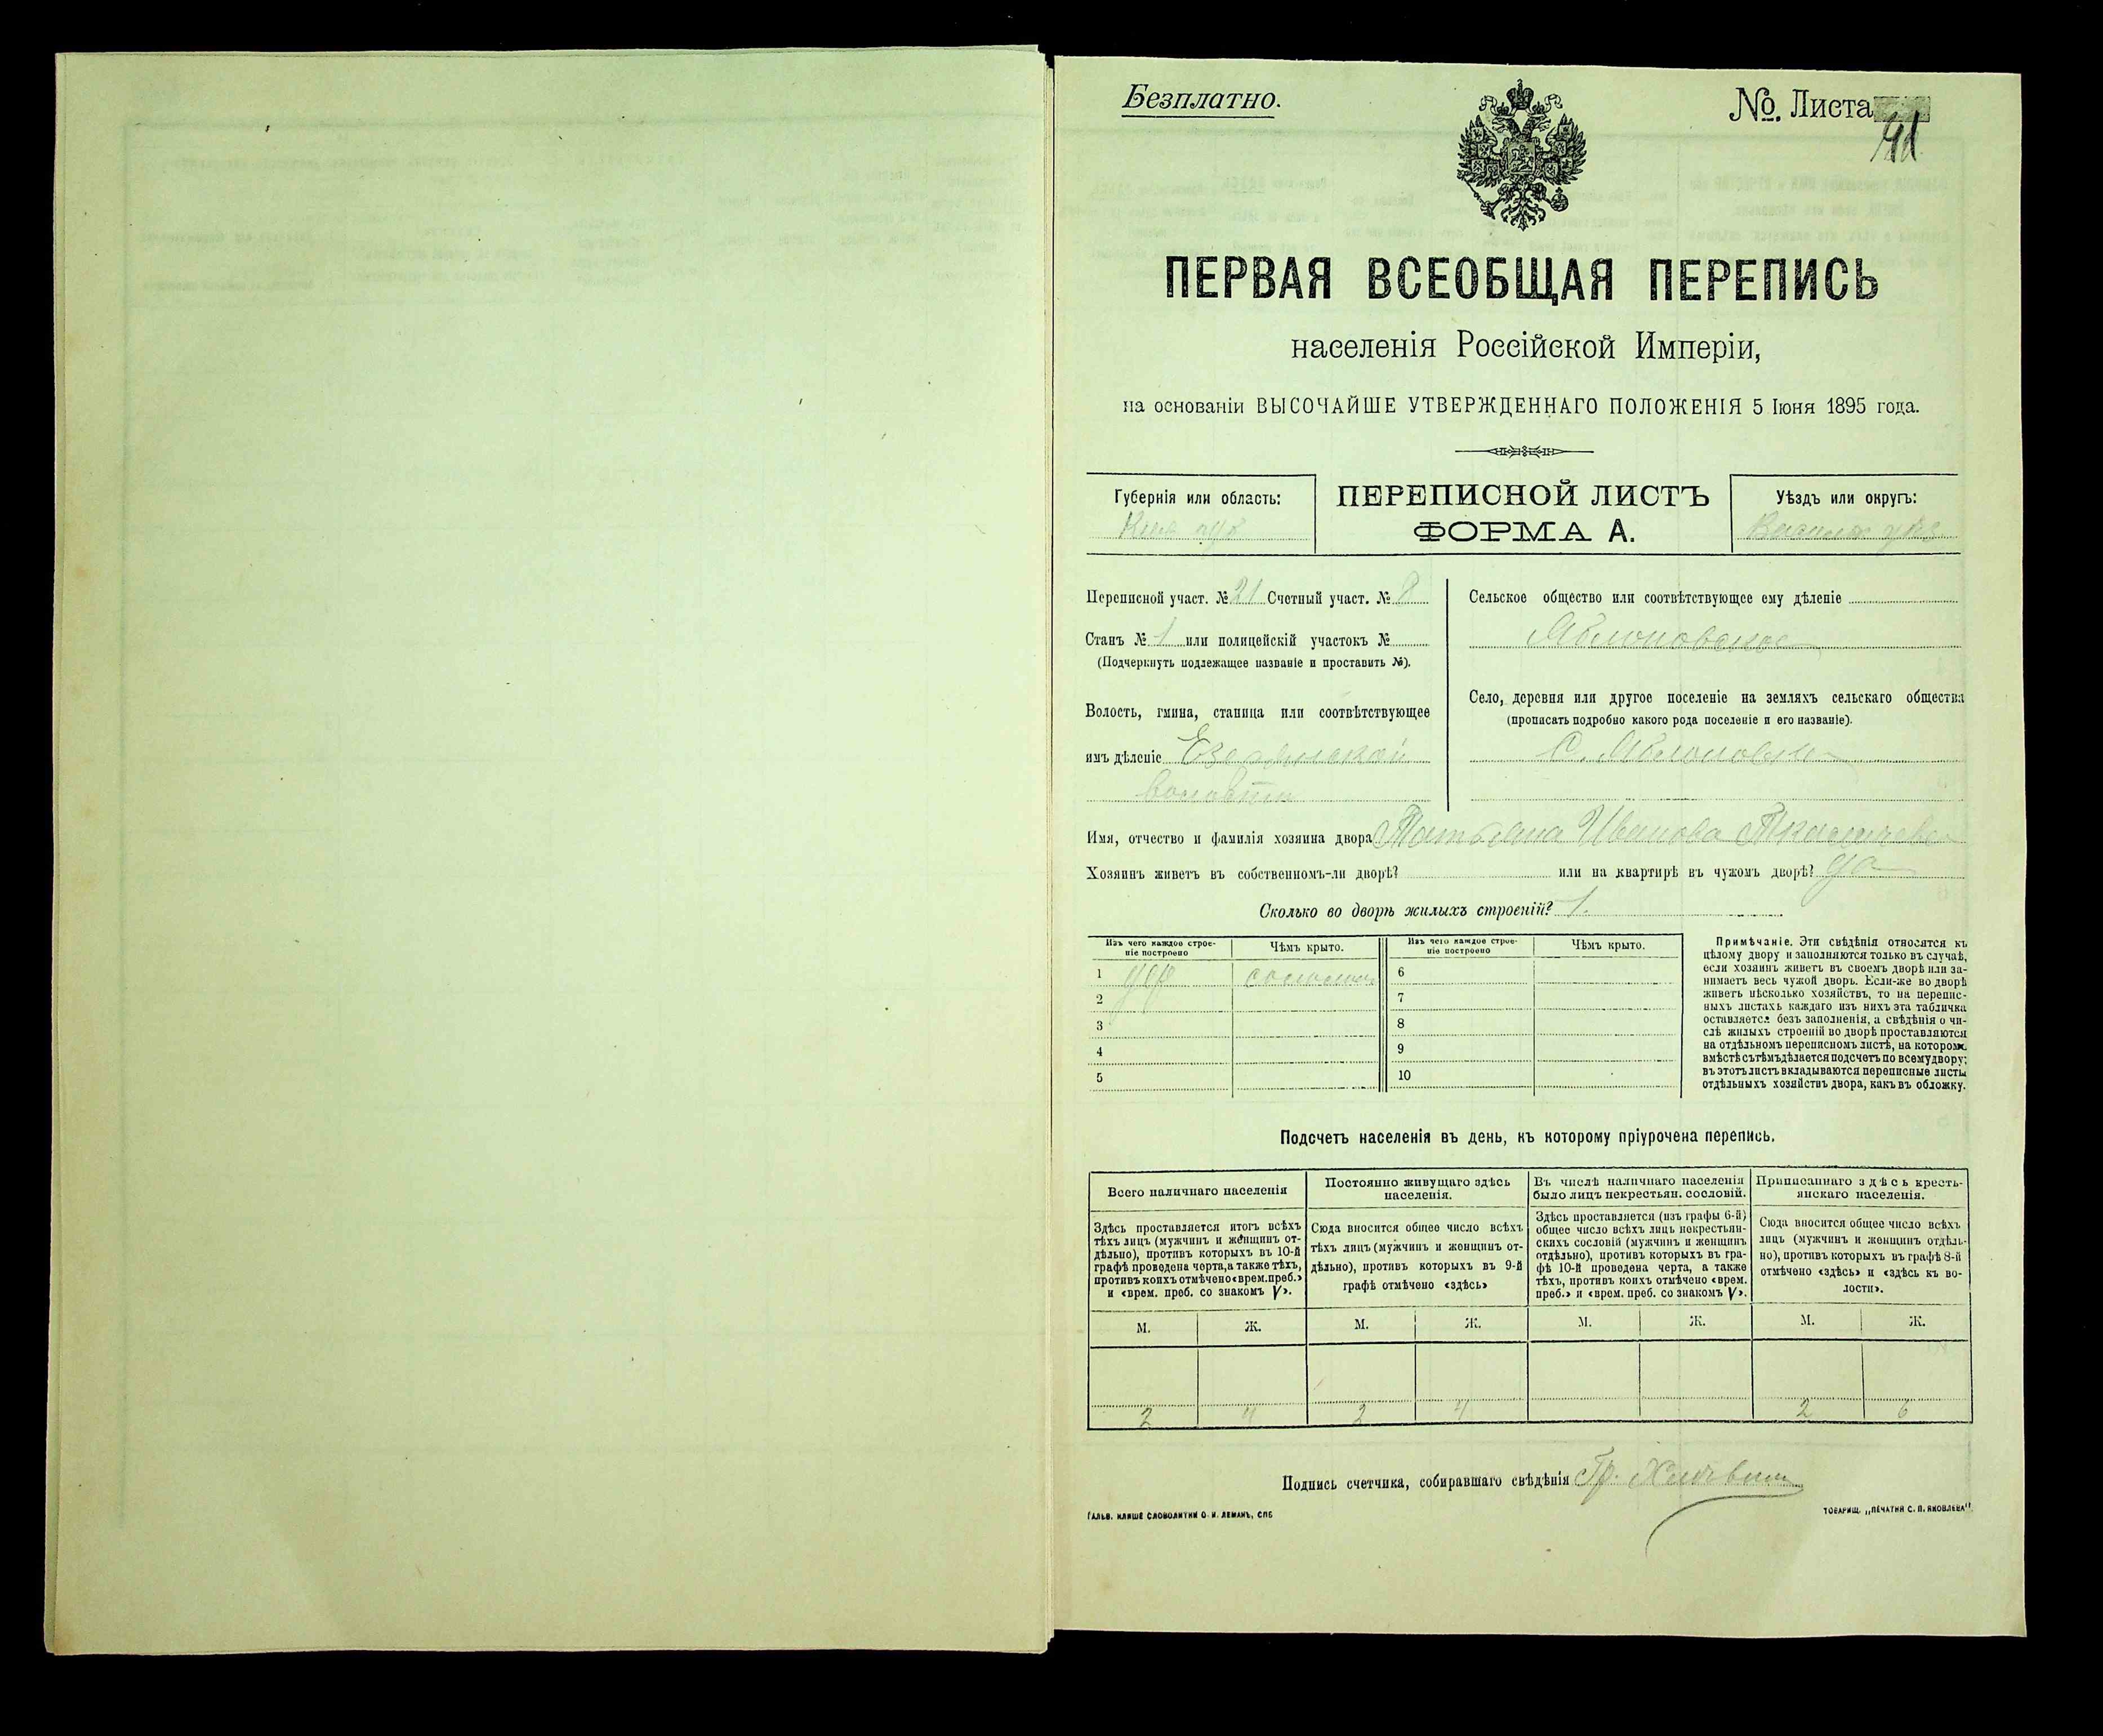 Безплатно.
№ Листа 41
ПЕРВАЯ ВСЕОБЩАЯ ПЕРЕПИСЬ
населенія Россійской Имперіи,
на основаніи ВЫСОЧАЙШЕ УТВЕРЖДЕННАГО ПОЛОЖЕНІЯ 5 Іюня 1895 года.
Губернія или область:
Киев губ
ПЕРЕПИСНОЙ ЛИСТЪ
ФОРМА А.
Уѣздъ или округъ:
Переписной участ. № 21 Счетный участ. № 8
Станъ № 1 или полицейскій участокъ №
(Подчеркнуть подлежащее названіе и проставить №).
Волость, гмина, станица или соотвѣтствующее
имъ дѣленіе
волости
Сельское общество или соотвѣтствующее ему дѣленіе
Яблоновское
Село, деревня или другое поселеніе на земляхъ сельскаго общества
(прописать подробно какого рода поселеніе и его названіе).
С. Яблоновка
Имя, отчество и фамилія хозяина двора Татьяна Иванова
Хозяинъ живетъ въ собственномъ-ли дворѣ? или на квартирѣ въ чужомъ дворѣ? да
Сколько во дворѣ жилыхъ строеній? 1.
Изъ чего каждое строеніе построено
Чѣмъ крыто.
Изъ чего каждое строеніе построено
Чѣмъ крыто.
1 дер соломой
2
3
4
5
6
7
8
9
10
Примѣчаніе. Эти свѣдѣнія относятся къ
цѣлому двору и заполняются только въ случаѣ,
если хозяинъ живетъ въ своемъ дворѣ или за-
нимаетъ весь чужой дворъ. Если-же во дворѣ
живетъ нѣсколько хозяйствъ, то на перепис-
ныхъ листахъ каждаго изъ нихъ эта табличка
оставляется безъ заполненія, а свѣдѣнія о чи-
слѣ жилыхъ строеній во дворѣ проставляются
на отдѣльномъ переписномъ листѣ, на которомъ
вмѣстѣ съ тѣмъ дѣлается подсчетъ по всему двору;
въ этотъ листъ вкладываются переписные листы
отдѣльныхъ хозяйствъ двора, какъ въ обложку.
Подсчетъ населенія въ день, къ которому пріурочена перепись.
Всего наличнаго населенія
Здѣсь проставляется итогъ всѣхъ
тѣхъ лицъ (мужчинъ и женщинъ от-
дѣльно), противъ которыхъ въ 10-й
графѣ проведена черта, а также тѣхъ,
противъ коихъ отмѣчено «врем. преб.»
и «врем. преб. со знакомъ V».
Постоянно живущаго здѣсь
населенія.
Сюда вносится общее число всѣхъ
тѣхъ лицъ (мужчинъ и женщинъ от-
дѣльно), противъ которыхъ въ 9-й
графѣ отмѣчено «здѣсь»
Въ числѣ наличнаго населенія
было лицъ некрестьян. сословій.
Здѣсь проставляется (изъ графы 6-й)
общее число всѣхъ лицъ некрестьян-
скихъ сословій (мужчинъ и женщинъ
отдѣльно), противъ которыхъ въ гра-
фѣ 10-й проведена черта, а также
тѣхъ, противъ коихъ отмѣчено «врем.
преб.» и «врем. преб. со знакомъ V».
Приписаннаго здѣсь кресть-
янскаго населенія.
Сюда вносится общее число всѣхъ
лицъ (мужчинъ и женщинъ отдѣль-
но), противъ которыхъ въ графѣ 8-й
отмѣчено «здѣсь» и «здѣсь къ во-
лости».
М. Ж. М. Ж. М. Ж. М. Ж.
2 4 2 4 2 6
Подпись счетчика, собиравшаго свѣдѣнія Гр.
ГАЛЬВ. КЛИШЕ СЛОВОЛИТНИ О. И. ЛЕМАНЪ, СПБ
ТОВАРИЩ. „ПЕЧАТНЯ С. П. ЯКОВЛЕВА"